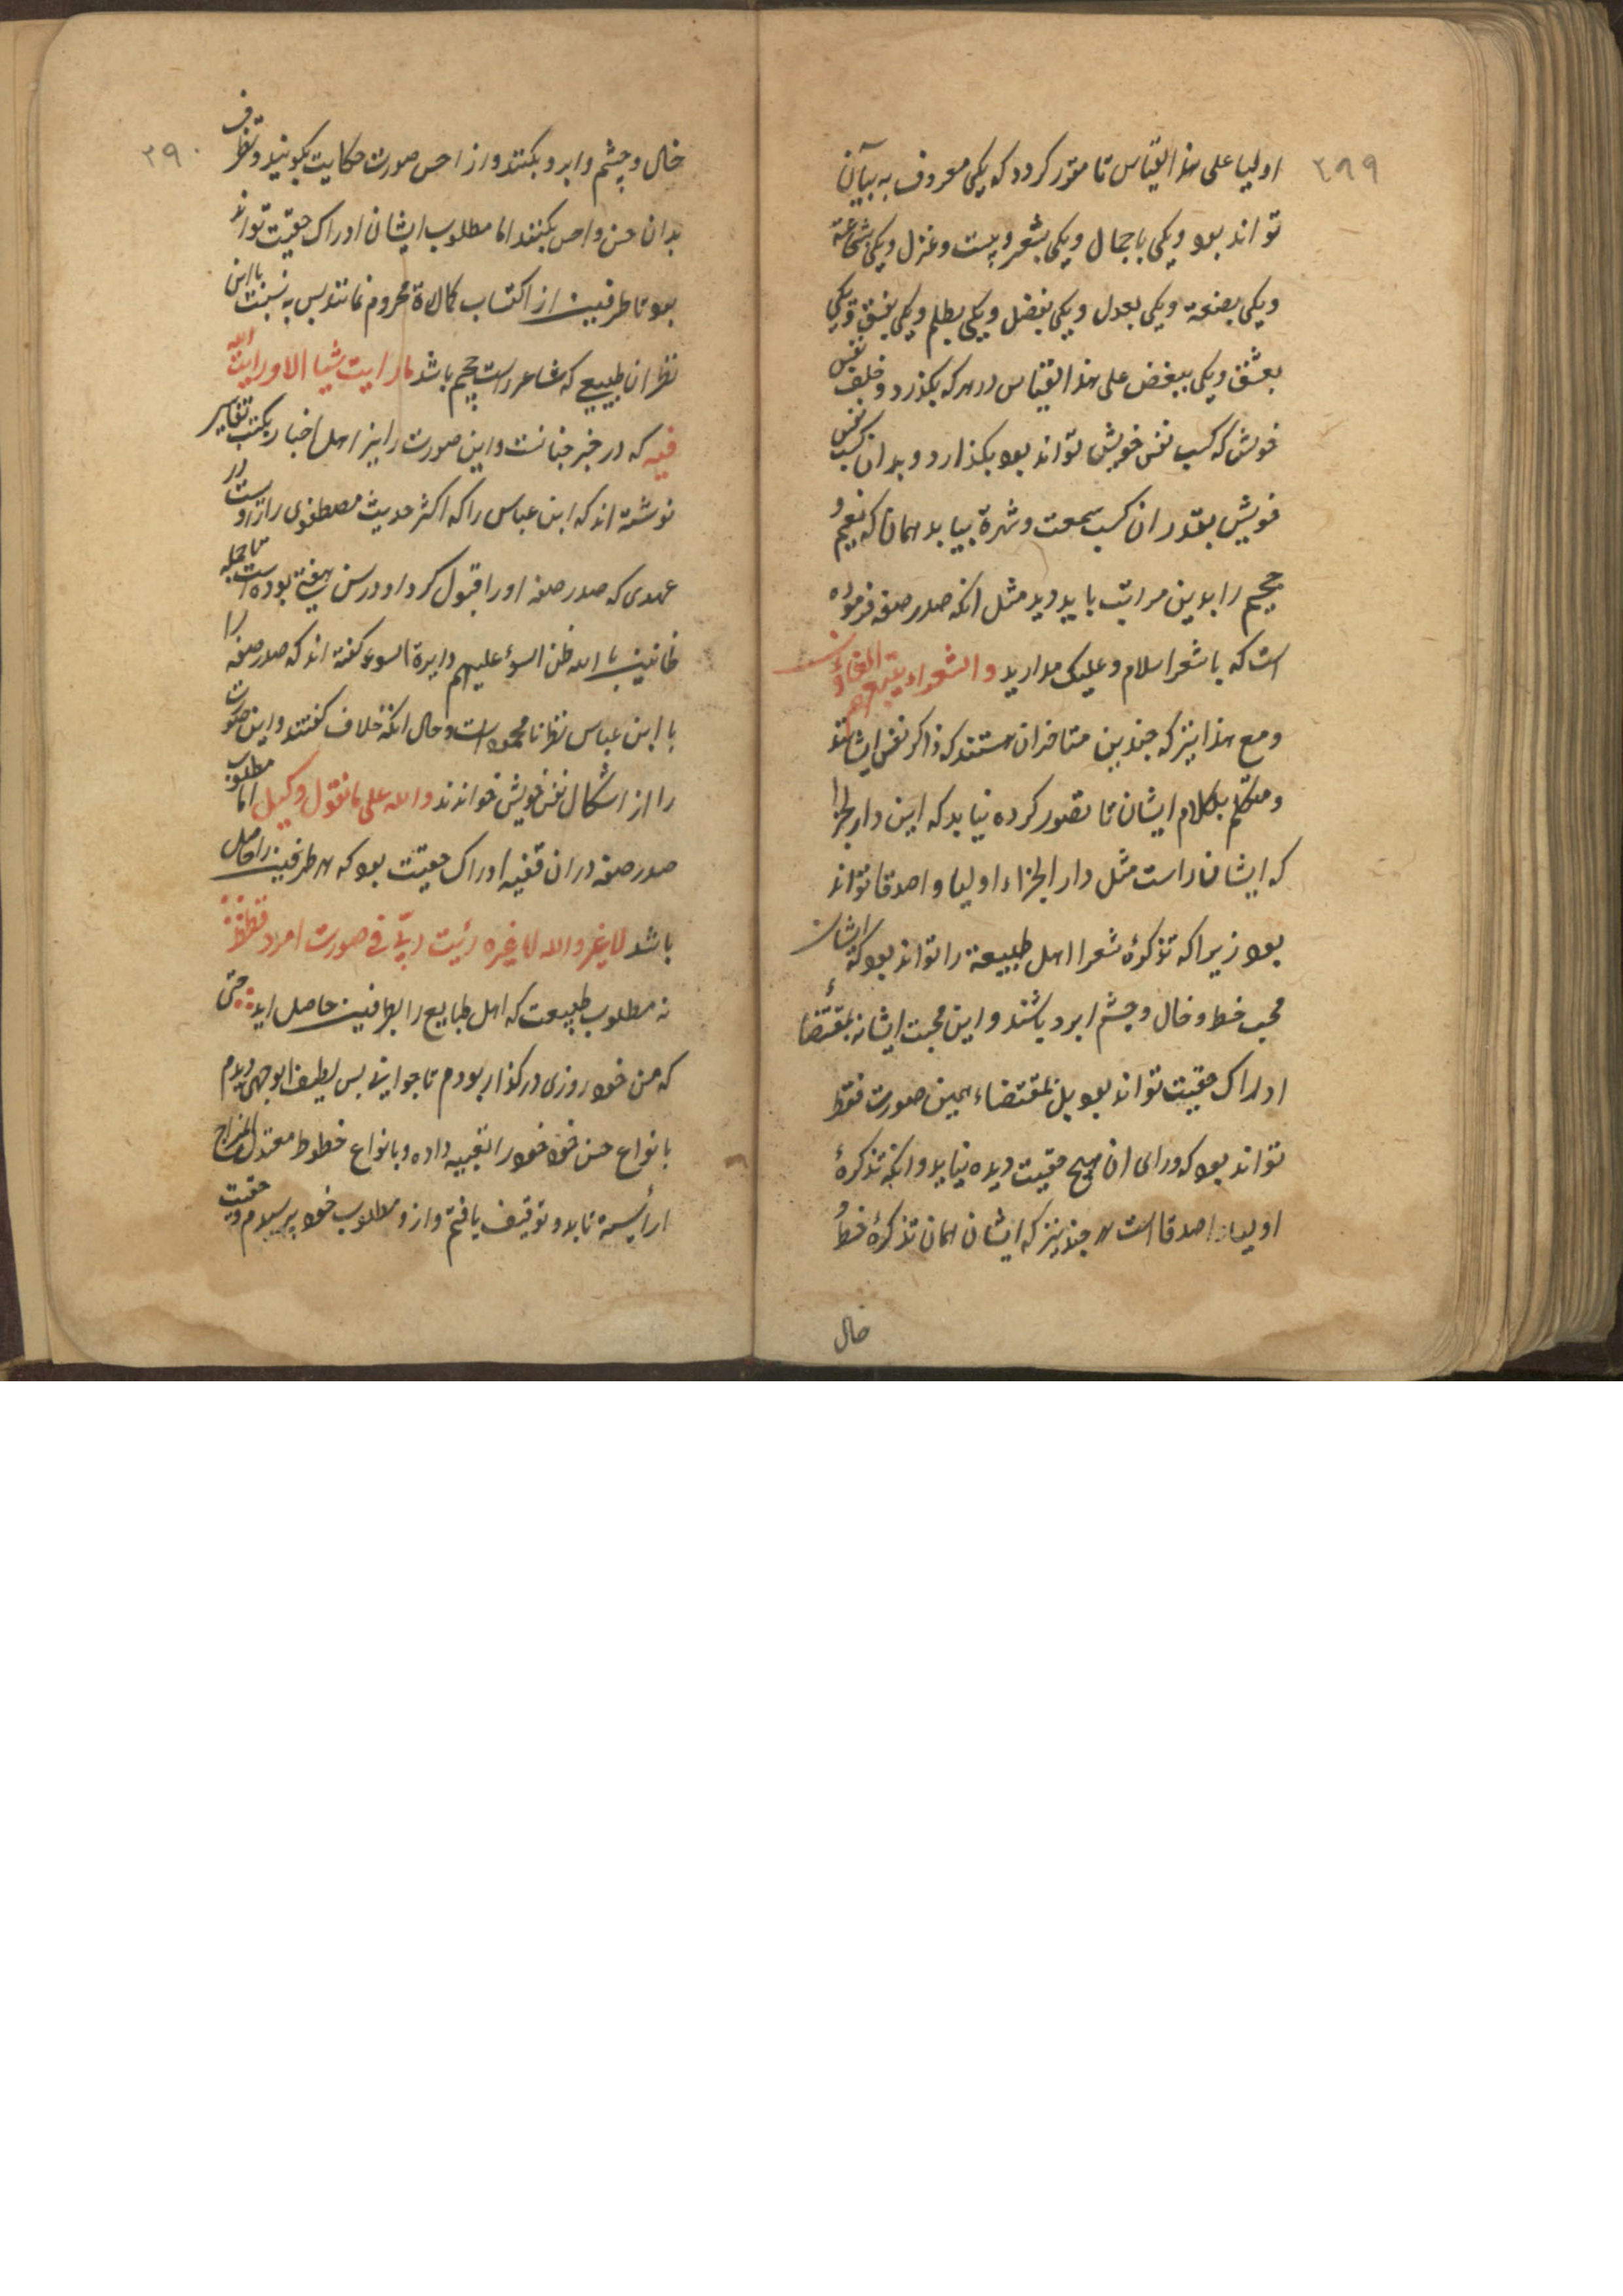 ۲۸۹
اولیا علی هذا القیاس تا مقرر کردد که یکی معروف به بیان
تواند بود و یکی باجمال و یکی بشعر و بیت و غزل و یکی بشجاعة
و یکی بصنعة و یکی بعدل و یکی بفضل و یکی بظلم و یکی بفسق و یکی
بعشق و یکی ببغض علی هذا القیاس در هر که بکذرد و خلف نفس
خویش که کسب نفس خویش تواند بود بکذارد و بدان کسب نفس
خویش بقدر ان کسب سمعت و شهرة بیابد همانا که نعیم و
جحیم را بدین مراتب باید دید مثل انکه صدر صفه فرموده
است که با شعرا سلام و علیک مدارید والشعراء یتبعهم الغاون
و مع هذا نیز که چندین متاخران هستند که ذاکر نفس ایشانند
و متکلم بکلام ایشان تا تصور کرده نیاید که این دار الجزا
که ایشانراست مثل دار الجزاء اولیا و اصدقا تواند
بود زیرا که تذکرهٔ شعرا اهل طبیعة را تواند بود که ایشان
محب خط و خال و چشم ابرو باشند و این محبت ایشانه بمقتضاء
ادراک حقیت تواند بود بل بمقتضاء همین صورت فقط
تواند بود که ورای ان هیچ حقیت دیده نیاید و انکه تذکرهٔ
اولیا و اصدقا است هر چند نیز که ایشان همان تذکرهٔ خط و
خال
۲۹۰
خال و چشم و ابرو بکنند و از احسن صورت حکایت بکویند و تصرف
بدان حسن و احسن بکنند اما مطلوب ایشان ادراک حقیت تواند
بود تا طرفین از اکتساب کمالاة محروم نمانند پس به نسبت با این
نظر ان طبیعی که شاعر راست جحیم باشد ما رایت شیا الا و رایت الله
فیه که در خبر جنانست و این صورت را نیز اهل اخبار بکتب تفاسیر
نوشته اند که ابن عباس را که اکثر حدیث مصطفوی را زاوست در
عهدی که صدر صفه او را قبول کرد او در سن هفتة بوده است تا جمله
ظانین بالله ظن السوء علیهم دایرة السوء کفته اند که صدر صفه را
با ابن عباس نظر نا محمود است و حال انکه خلاف کفتند و این صورت
را از اشکال نفس خویش خواندند والله علی ما نقول وکیل اما مطلوب
صدر صفه در ان قضیه ادراک حقیت بود که هر طرفین را حاصل
باشد لا یغر والله لا یغره رئیت ربی فی صورت امرد قطط
نه مطلوب طبیعت که اهل طبایع را بطرفین حاصل اید حتی
که من خود روزی در کذار بودم تا جوانی بس لطیف ابو جهی دیدم
بانواع حسن خود خود را تعبیه داده و بانواع خطوط معتدل المزاج
اراسته تا بدو توقیف یافتم و ازو مطلوب خود پرسیدم و حقیت